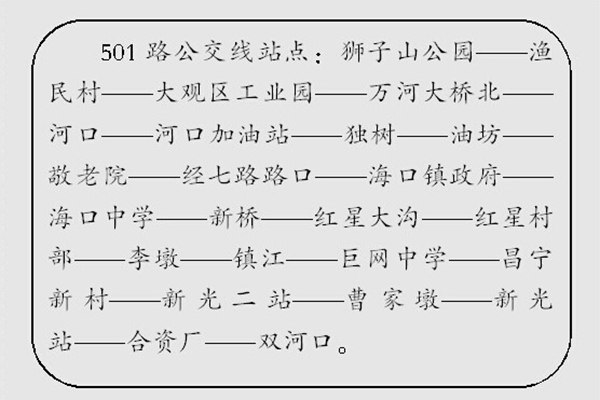 501 路公交线站点：狮子山公园——渔
民村——大观区工业园——万河大桥北——
河口——河口加油站——独树——油坊——
敬老院——经七路路口——海口镇政府——
海口中学——新桥——红星大沟——红星村
部——李墩——镇江——巨网中学——昌宁
新村——新光二站——曹家墩——新光
站——合资厂——双河口。